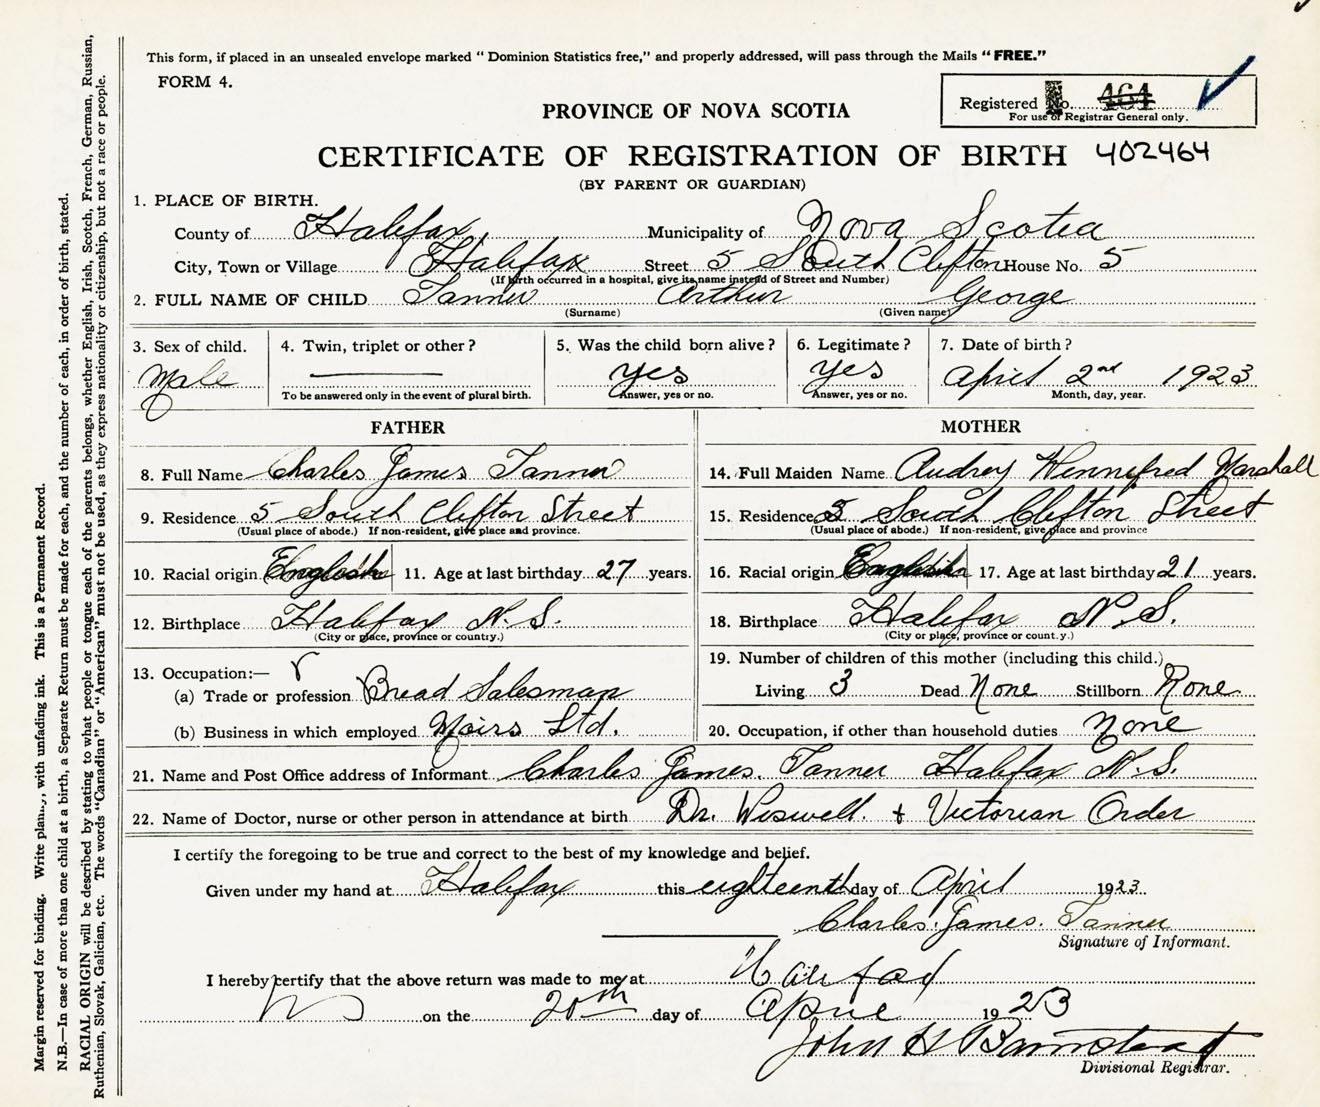 This form, if placed in an unsealed envelope marked “ Dominion Statistics free,” and properly addressed, will pass through the Mails “ FREE.”
FORM 4.
Registered No. 464
For use of Registrar General only.
PROVINCE OF NOVA SCOTIA
CERTIFICATE OF REGISTRATION OF BIRTH 402464
(BY PARENT OR GUARDIAN)
1. PLACE OF BIRTH.
County of Halifax, Municipality of Nova Scotia
City, Town or Village Halifax Street 5 South Clifton House No. 5
(If birth occurred in a hospital, give its name instead of Street and Number)
2. FULL NAME OF CHILD Tanner Arthur George
(Surname) (Given name)
3. Sex of child. 4. Twin, triplet or other? 5. Was the child born alive? 6. Legitimate? 7. Date of birth?
Male yes yes April 2nd 1923
To be answered only in the event of plural birth. Answer, yes or no. Answer, yes or no. Month, day, year.
FATHER MOTHER
8. Full Name Charles James Tanner 14. Full Maiden Name Audrey Wennefred Marshall
9. Residence 5 South Clifton Street 15. Residence 5 South Clifton Street
(Usual place of abode.) If non-resident, give place and province. (Usual place of abode.) If non-resident, give place and province
10. Racial origin English 11. Age at last birthday 27 years. 16. Racial origin English 17. Age at last birthday 21 years.
12. Birthplace Halifax N.S. 18. Birthplace Halifax N.S.
(City or place, province or country.) (City or place, province or count.y.)
13. Occupation:— 19. Number of children of this mother (including this child.)
(a) Trade or profession Bread Salesman Living 3 Dead None Stillborn None
(b) Business in which employed Moirs Ltd. 20. Occupation, if other than household duties None
21. Name and Post Office address of Informant Charles James. Tanner Halifax N.S.
22. Name of Doctor, nurse or other person in attendance at birth Dr. Wiswell. + Victorian Order
I certify the foregoing to be true and correct to the best of my knowledge and belief.
Given under my hand at Halifax this eighteenth day of April 1923
Charles. James. Tanner
Signature of Informant.
I hereby certify that the above return was made to me at Halifax
on the 20th day of April 1923
John H Barnstead
Divisional Registrar.
Margin reserved for binding. Write plainly, with unfading ink. This is a Permanent Record.
N.B.—In case of more than one child at a birth, a Separate Return must be made for each, and the number of each, in order of birth, stated.
RACIAL ORIGIN will be described by stating to what people or tongue each of the parents belongs, whether English, Irish, Scotch, French, German, Russian,
Ruthenian, Slovak, Galician, etc. The words “Canadian” or “American” must not be used, as they express nationality or citizenship, but not a race or people.